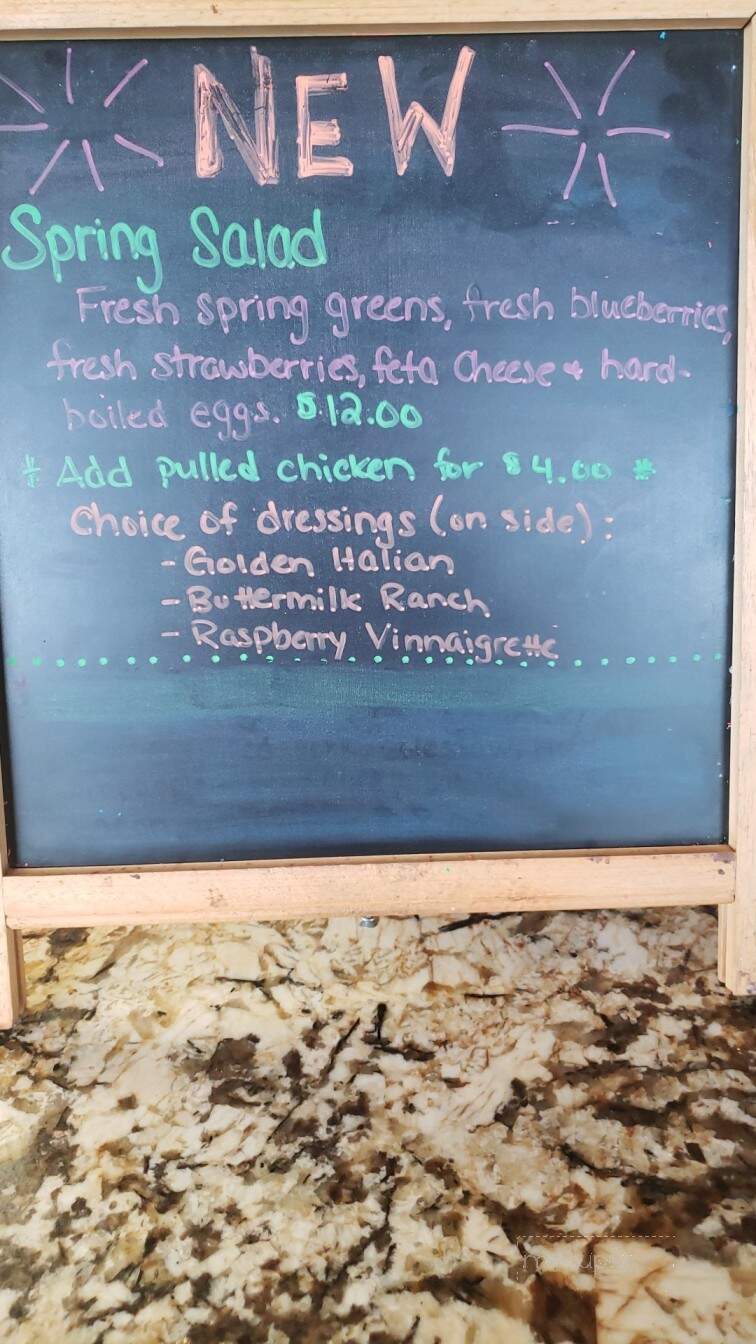 NEW
Spring Salad
Fresh spring greens, fresh blueberries,
fresh strawberries, feta Cheese & hard-
boiled eggs. $12.00
* Add pulled chicken for $4.00 *
Choice of dressings (on side):
- Golden Italian
- Buttermilk Ranch
- Raspberry Vinnaigrette